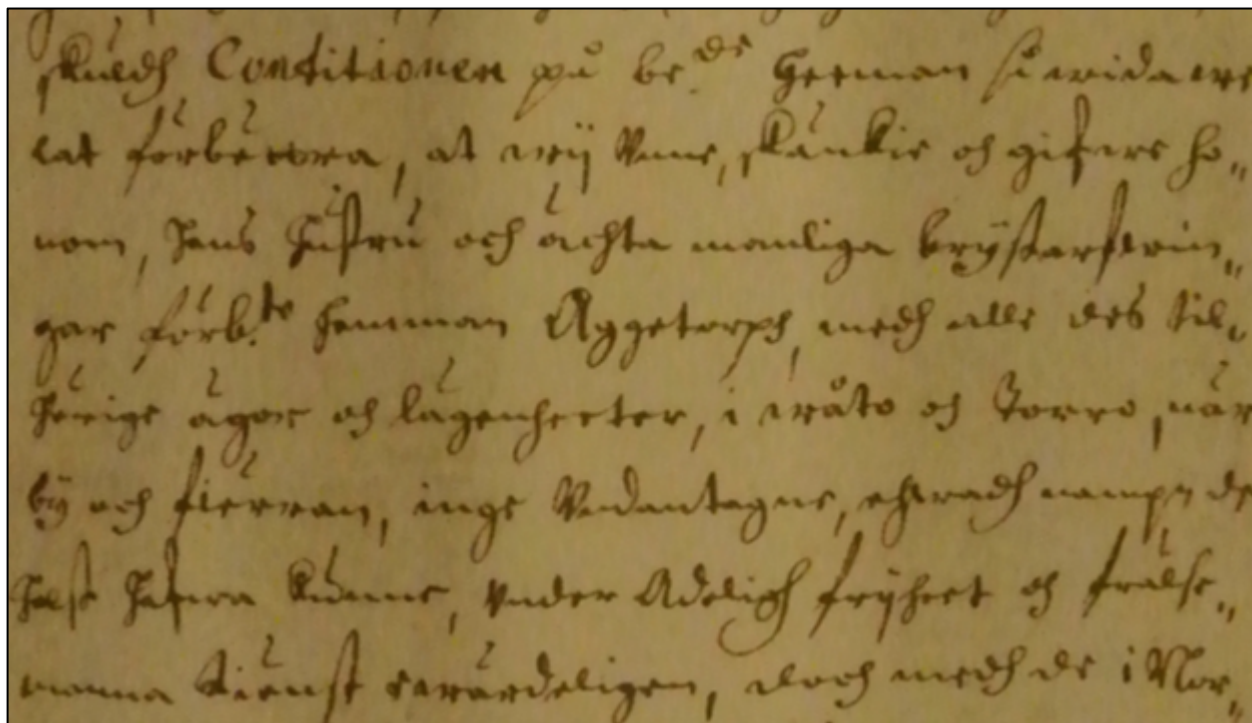 skuldh Conditionen på be:de Herman så wida wee
lat förbättra, at wij Unne, skänkie och gifwe ho„
nom, hans hustru och ächta manliga bryst arfwin„
gar förb:te hemman Aggetorph, medh alle des til„
hörige ägor och lägenheeter, i wåto och Torro, när
by och fierran, inge Undantagne, ehwadh nampn de
helst hafwa kunne, under Adeligh frijheet och frälse„
manna tienst ewärdeligen, doch medh de i Nor„